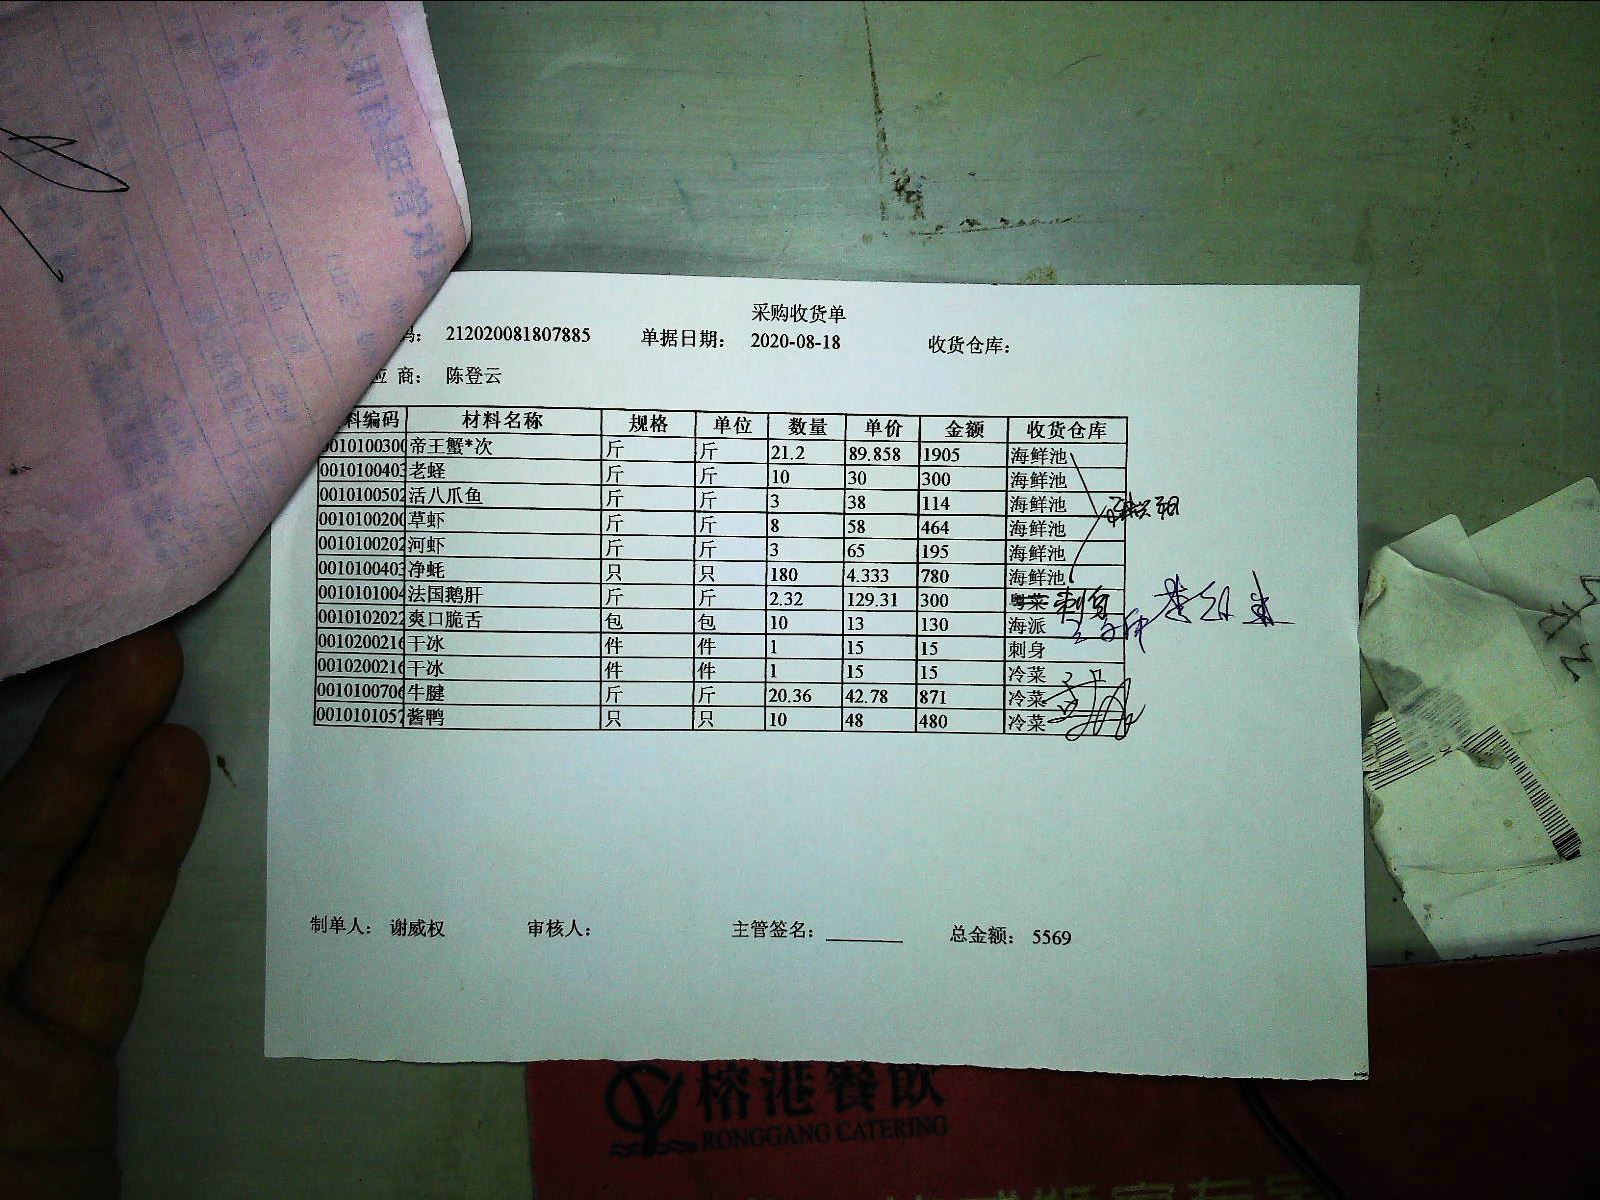 采购收货单
码： 212020081807885 单据日期： 2020-08-18 收货仓库：
应 商： 陈登云
料编码 材料名称 规格 单位 数量 单价 金额 收货仓库
0010100300 帝王蟹*次 斤 斤 21.2 89.858 1905 海鲜池
0010100403 老蛏 斤 斤 10 30 300 海鲜池
0010100502 活八爪鱼 斤 斤 3 38 114 海鲜池
0010100200 草虾 斤 斤 8 58 464 海鲜池
0010100202 河虾 斤 斤 3 65 195 海鲜池
0010100403 净蚝 只 只 180 4.333 780 海鲜池
0010101004 法国鹅肝 斤 斤 2.32 129.31 300 粤菜 刺身
0010102022 爽口脆舌 包 包 10 13 130 海派
0010200216 干冰 件 件 1 15 15 刺身
0010200216 干冰 件 件 1 15 15 冷菜
0010100706 牛腱 斤 斤 20.36 42.78 871 冷菜
0010101057 酱鸭 只 只 10 48 480 冷菜
制单人： 谢威权 审核人： 主管签名： 总金额： 5569
榕港餐飲
RONGGANG CATERING